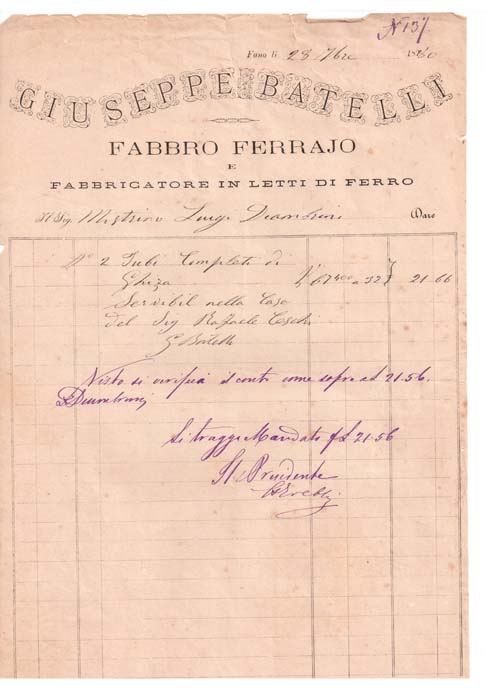 N 137
Fano li 28 7bre 1880
GIUSEPPE BATELLI
FABBRO FERRAJO
E
FABBRICATORE IN LETTI DI FERRO
Il Sig. Luigi Dare
N° 2 Tubi Completi di
Ghiza £ 67 400 a 32 21 66
Servibil nella Casa
del Sig Raffaele
G Batelli
Visto si verifica il conto come sopra a £ 21.56.
Si tragga Mandato p £ 21.56
Il Presidente